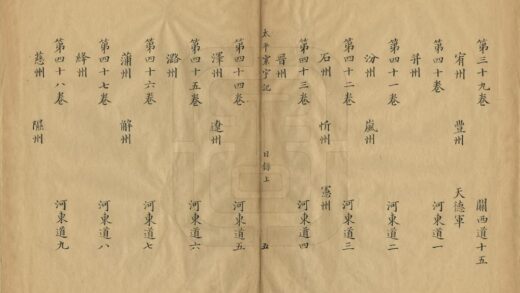 第三十九卷 關西道十五
宥州 豐州 天德軍
第四十卷 河東道一
并州
第四十一卷 河東道二
汾州 嵐州
第四十二卷 河東道三
石州 忻州 憲州
第四十三卷 河東道四
晉州
太平寰宇記 目錄上 五
第四十四卷 河東道五
澤州 遼州
第四十五卷 河東道六
潞州
第四十六卷 河東道七
蒲州 解州
第四十七卷 河東道八
絳州
第四十八卷 河東道九
慈州 隰州